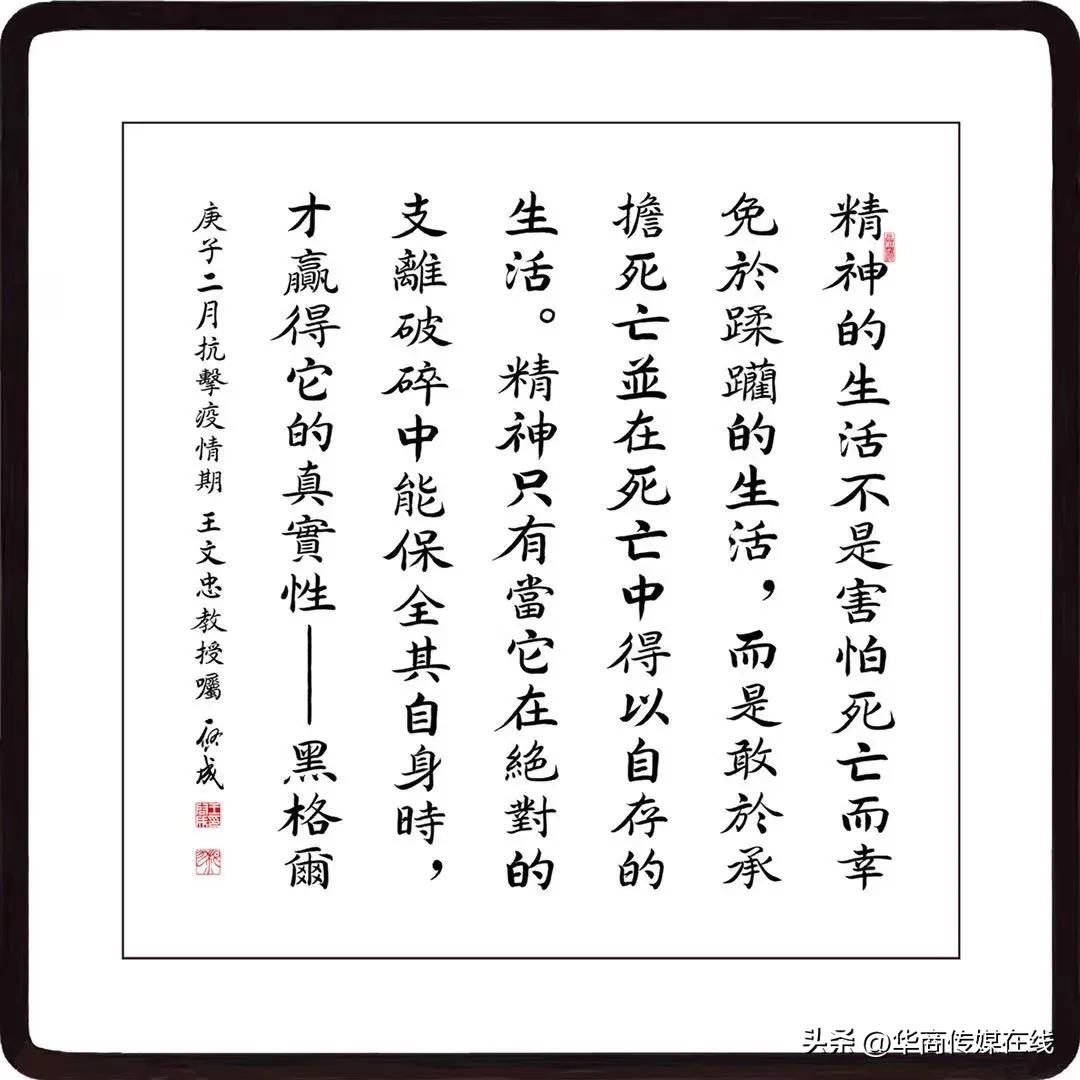 精神的生活不是害怕死亡而幸
免於蹂躪的生活，而是敢於承
擔死亡並在死亡中得以自存的
生活。精神只有當它在絕對的
支離破碎中能保全其自身時，
才贏得它的真實性——黑格爾
庚子二月抗擊疫情期 王文忠教授囑 成
头条 @华商传媒在线